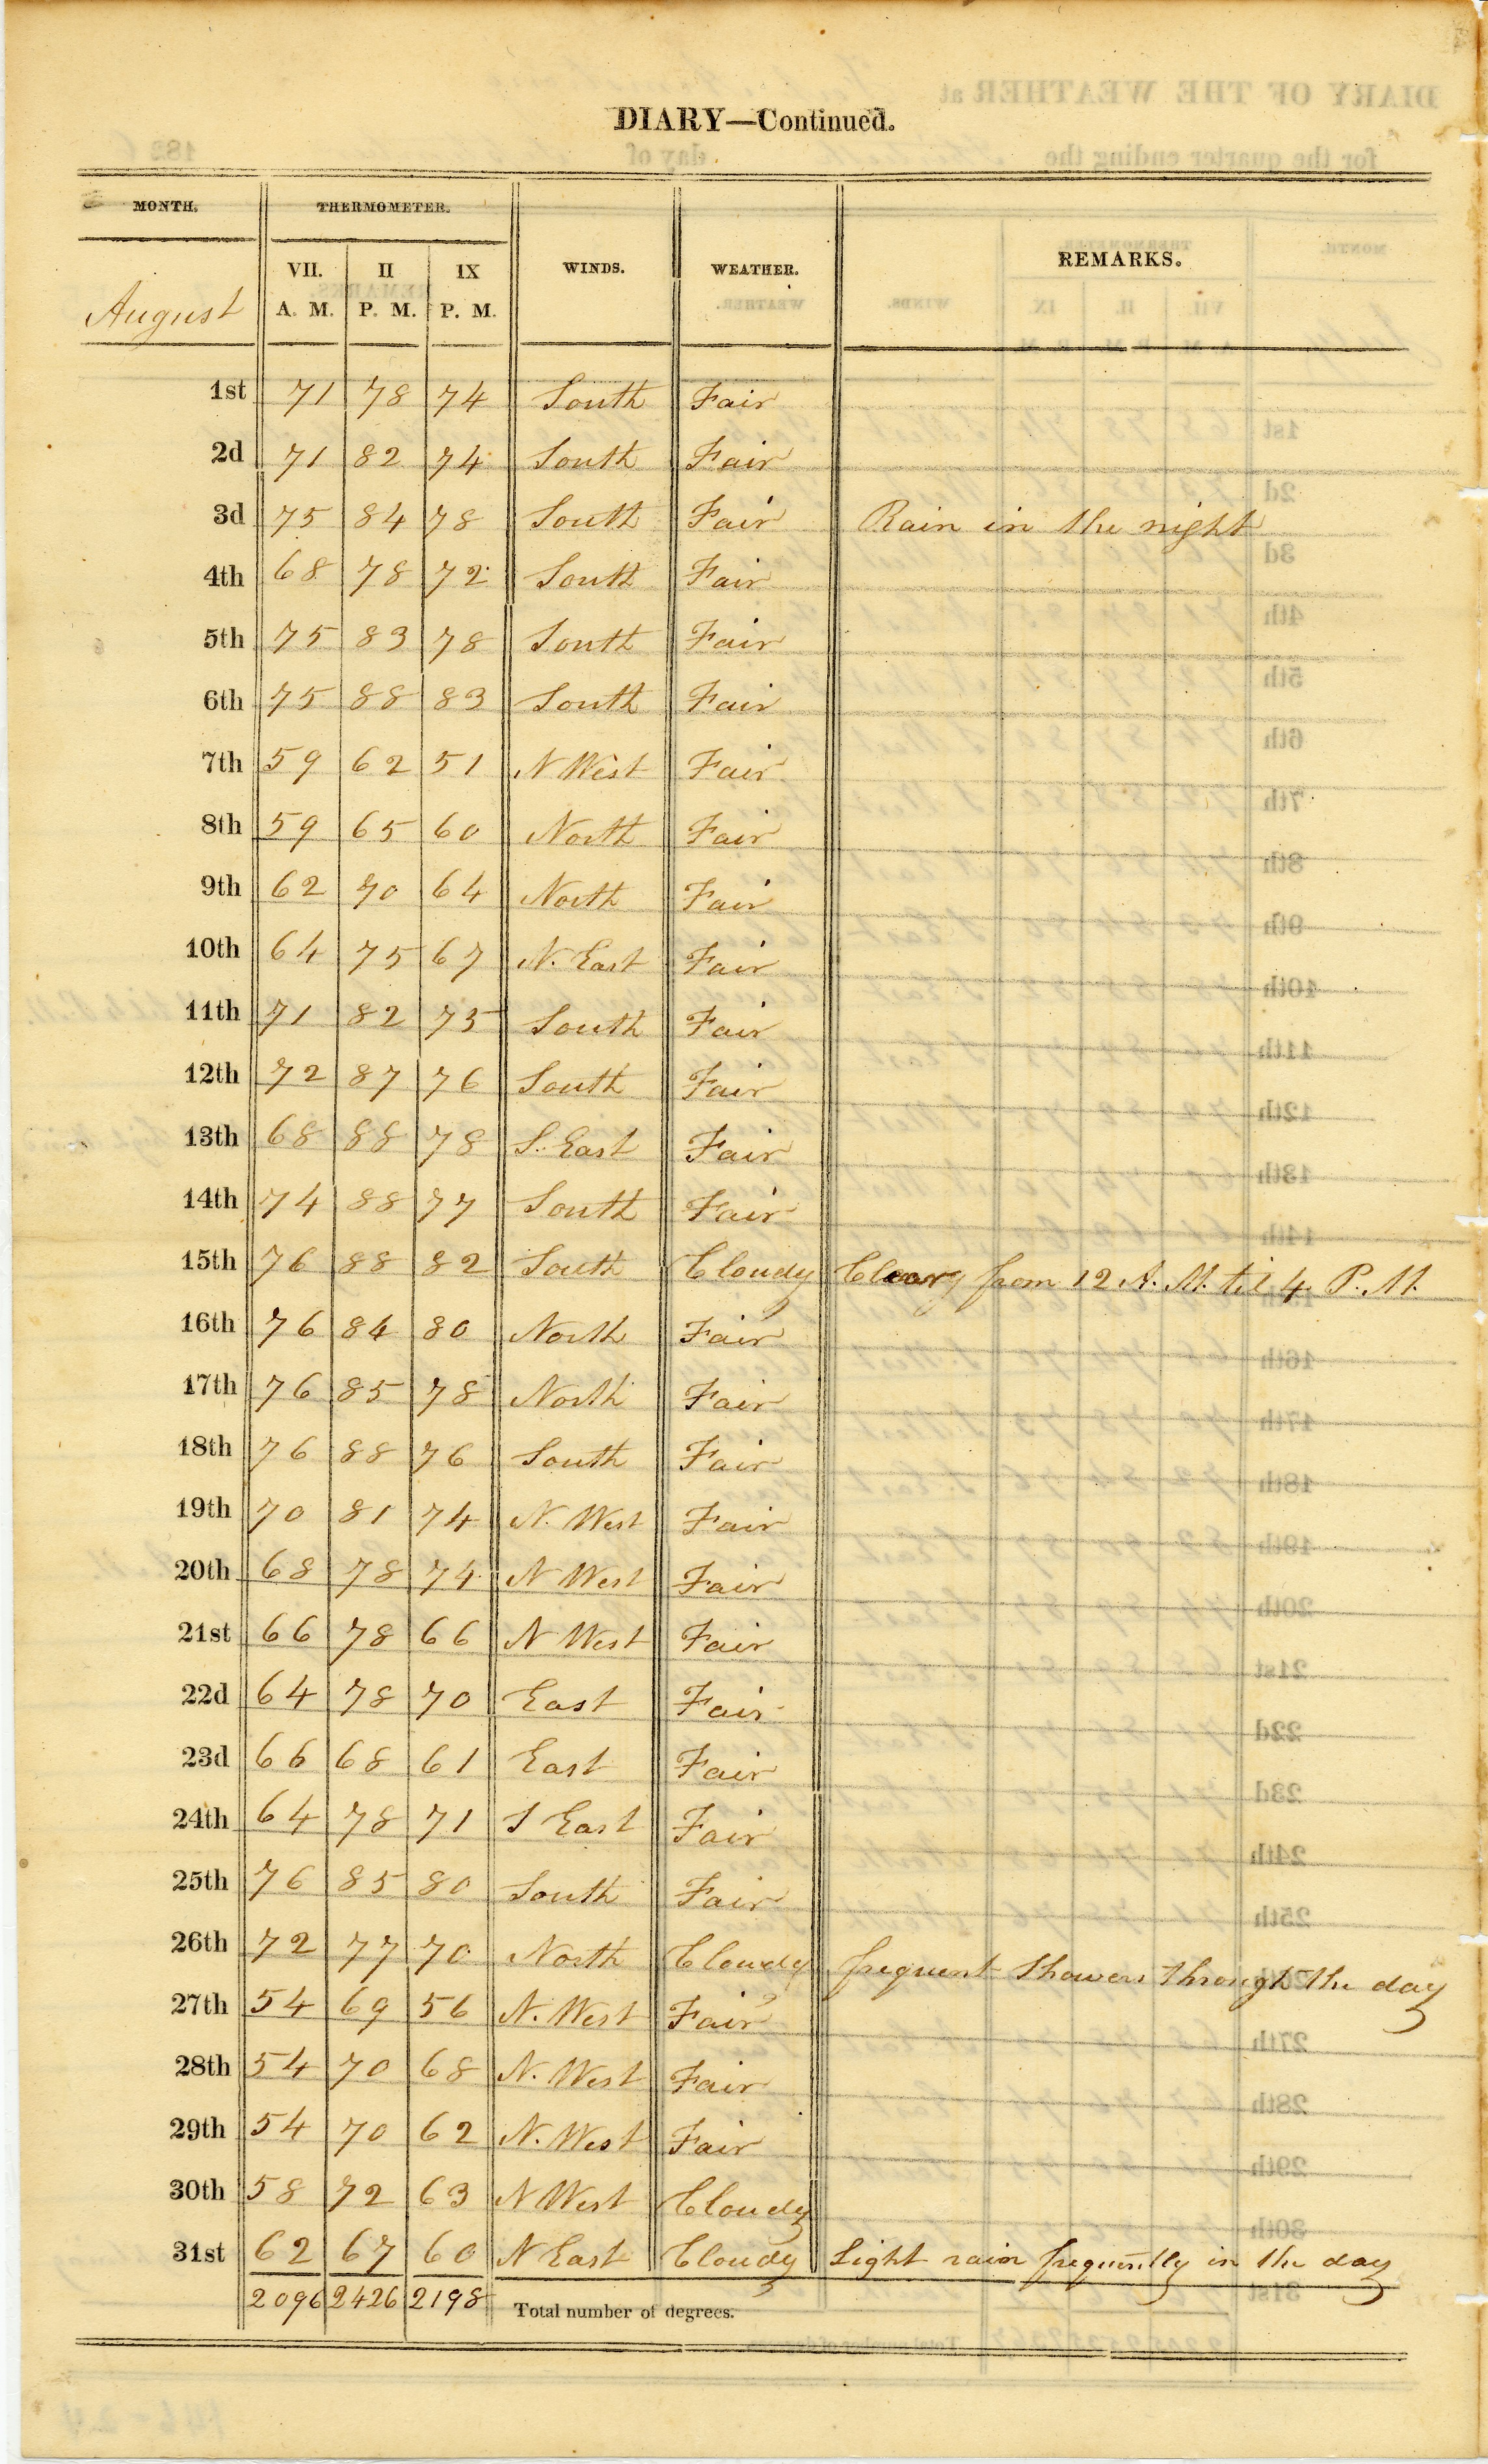 DIARY—Continued.
MONTH. THERMOMETER. WINDS. WEATHER. REMARKS.
August VII. A. M. II P. M. IX P. M.
1st 71 78 74 South Fair
2d 71 82 74 South Fair
3d 75 84 78 South Fair Rain in the night
4th 68 78 72 South Fair
5th 75 83 78 South Fair
6th 75 88 83 South Fair
7th 59 62 51 N West Fair
8th 59 65 60 North Fair
9th 62 70 64 North Fair
10th 64 75 67 N. East Fair
11th 71 82 75 South Fair
12th 72 87 76 South Fair
13th 68 88 78 S. East Fair
14th 74 88 77 South Fair
15th 76 88 82 South Cloudy from 12 A. M. til 4 P. M.
16th 76 84 80 North Fair
17th 76 85 78 North Fair
18th 76 88 76 South Fair
19th 70 81 74 N. West Fair
20th 68 78 74 N West Fair
21st 66 78 66 N West Fair
22d 64 78 70 East Fair
23d 66 68 61 East Fair
24th 64 78 71 S East Fair
25th 76 85 80 South Fair
26th 72 77 70 North Cloudy frequent showers through the day
27th 54 69 56 N. West Fair
28th 54 70 68 N. West Fair
29th 54 70 62 N. West Fair
30th 58 72 63 N West Cloudy
31st 62 67 60 N East Cloudy Light rain frequently in the day
2096 2426 2198 Total number of degrees.